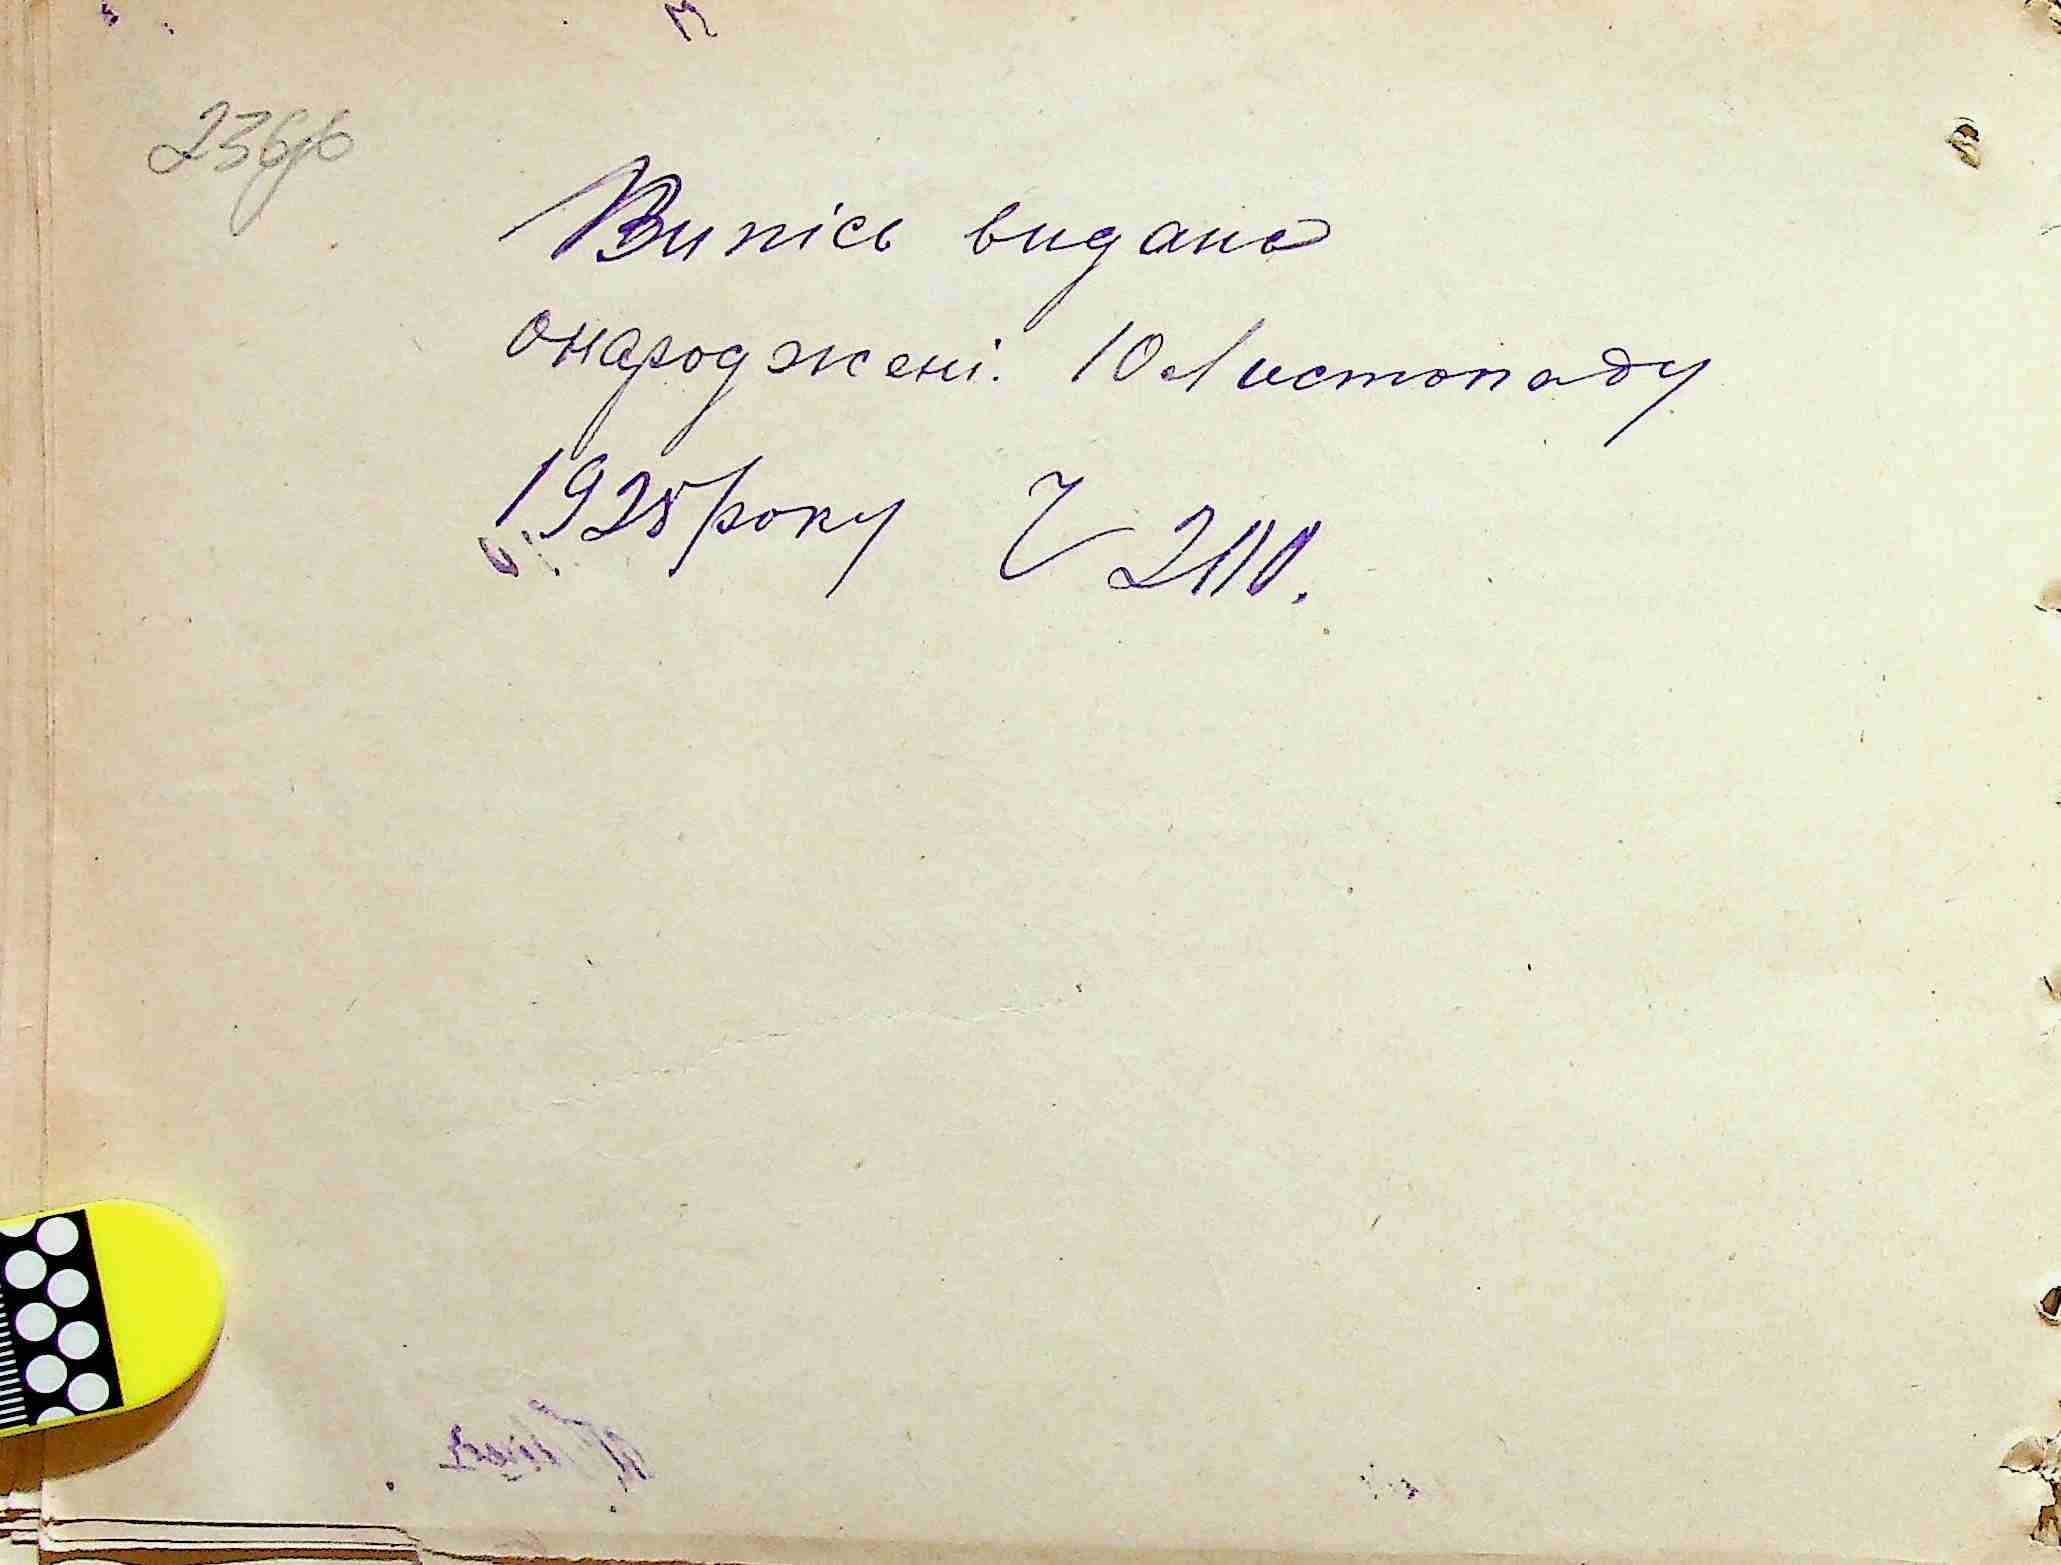 236
Випісь видано
онароджені. 10 Листопаду
1925 року Ч 2110.